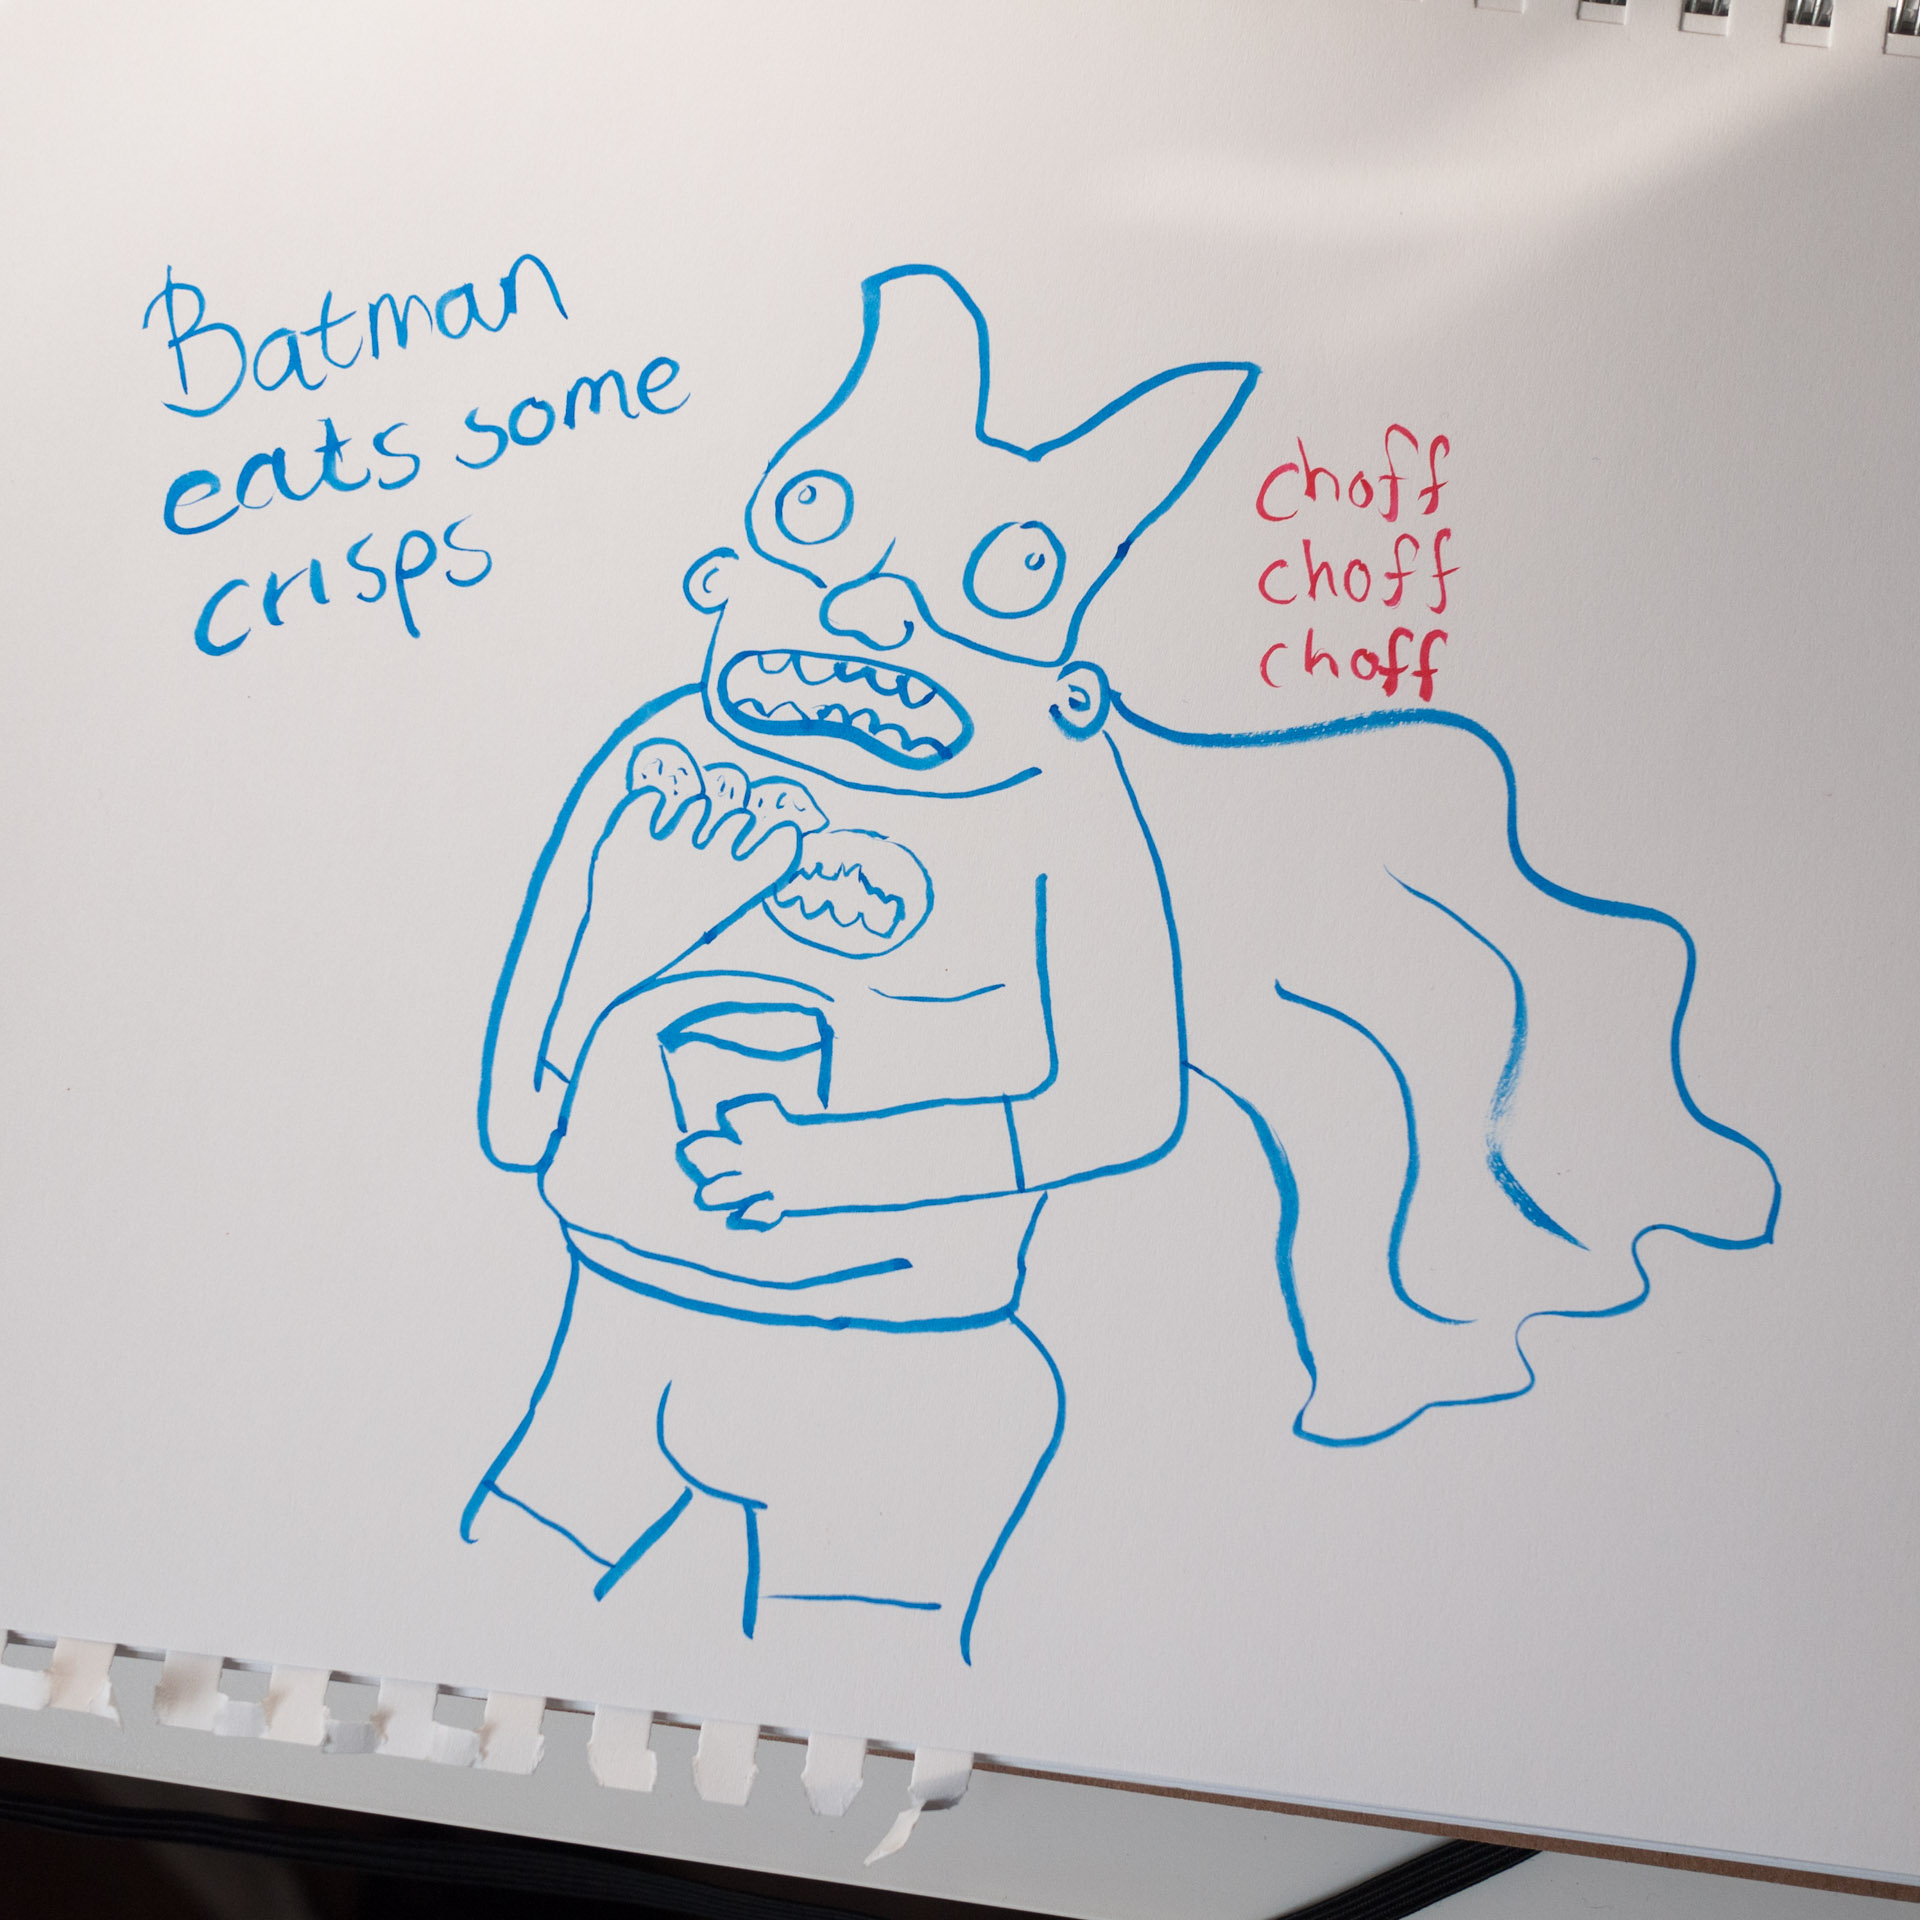 Batman
eats some
crisps
choff
choff
choff